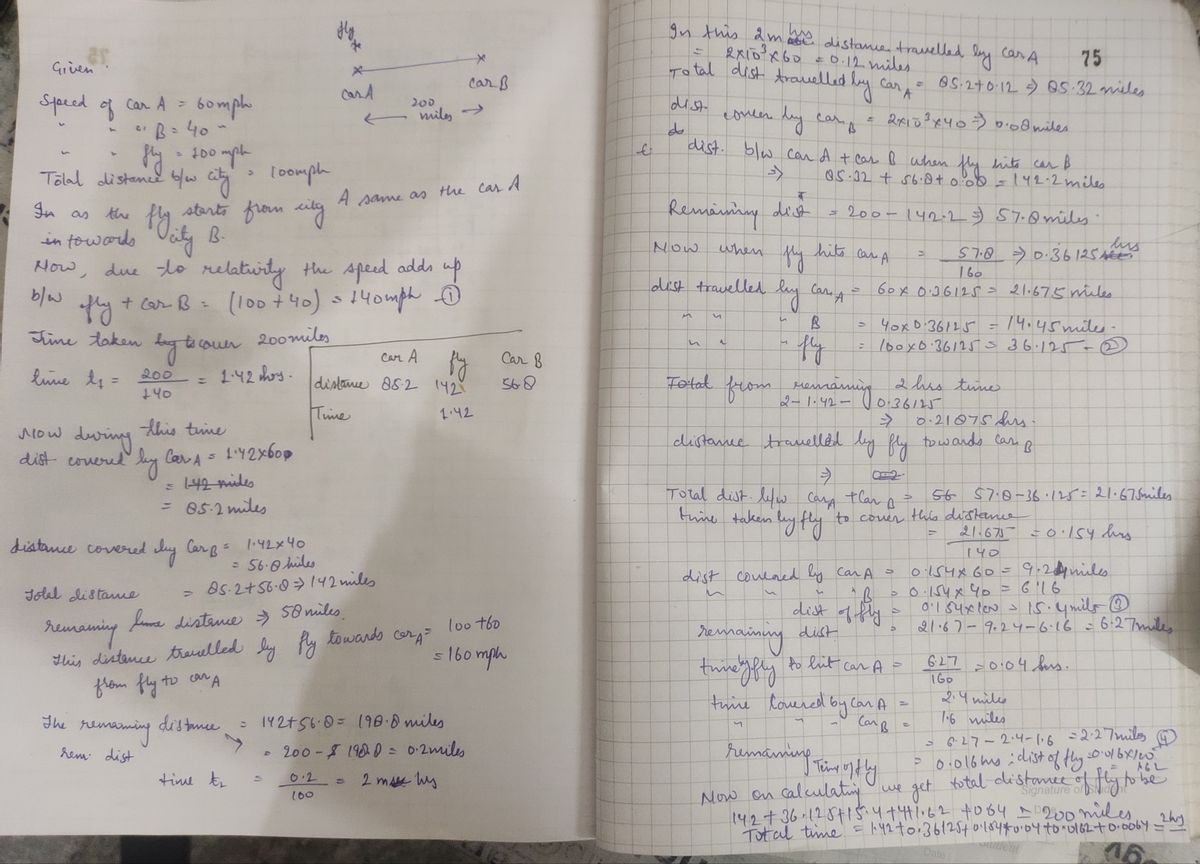 fly
Given.
car A
car B
200
miles
Speed of car A = 60mph
" " " B = 40 "
" " fly = 100 mph
Total distance b/w city = 100mph
In as the fly starts from city A same as the car A
in towards city B.
Now, due to relativity the speed adds up
b/w fly + car B = (100 + 40) = 140mph - ①
Time taken by to cover 200 miles
time t1 = 200/140 = 1.42 hrs.
car A fly Car B
distance 85.2 142 56.8
Time 1.42
Now during this time
dist covered by Car A = 1.42x60
= 142 miles
= 85.2 miles
distance covered by Car B = 1.42x40
= 56.8 miles
Total distance = 85.2+56.8 ⇒ 142 miles
remaining time distance ⇒ 58 miles.
This distance travelled by fly towards car A = 100 +60
= 160 mph
from fly to car A
The remaining distance = 142+56.8 = 198.8 miles
rem. dist = 200 - 198.8 = 0.2 miles
time t2 = 0.2/100 = 2 m hrs
75
In this 2m hrs distance travelled by car A
= 2x10³x60 = 0.12 miles
Total dist travelled by car A = 85.2+0.12 ⇒ 85.32 miles
dist. cover by car B = 2x10³x40 ⇒ 0.08 miles
dist. b/w car A + car B when fly hits car B
⇒ 85.32 + 56.8 + 0.08 = 142.2 miles
Remaining dist = 200 - 142.2 ⇒ 57.8 miles.
Now when fly hits car A = 57.8/160 ⇒ 0.36125 hrs
dist travelled by car A = 60x 0.36125 = 21.675 miles
" " " B = 40x0.36125 = 14.45 miles.
" " " fly = 100x0.36125 = 36.125 - ②
Total from remaining 2 hrs time
2-1.42- 0.36125
⇒ 0.21875 hrs.
distance travelled by fly towards car B
⇒
Total dist. b/w car A + Car B = 56 57.8-36.125 = 21.675 miles
time taken by fly to cover this distance
= 21.675/140 = 0.154 hrs
dist covered by car A = 0.154x 60 = 9.24 miles
" " " B = 0.154x 40 = 6.16
dist of fly = 0.154x100 = 15.4 miles ③
remaining dist = 21.67-9.24-6.16 = 6.27 miles
time by fly to hit car A = 6.27/160 = 0.04 hrs.
time covered by car A = 2.4 miles
" " " Car B = 1.6 miles
remaining = 6.27-2.4-1.6 = 2.27 miles ④
Time of fly = 0.016 hrs ; dist of fly = 0.016x100
= 1.62
Now on calculating we get total distance of fly to be
Signature of Student
142 + 36.125+15.4+4+1.62 +0.64 = 200 miles
Total time = 1.42+0.36125+0.154+0.04+0.0162+0.0064 = 2hrs
Date